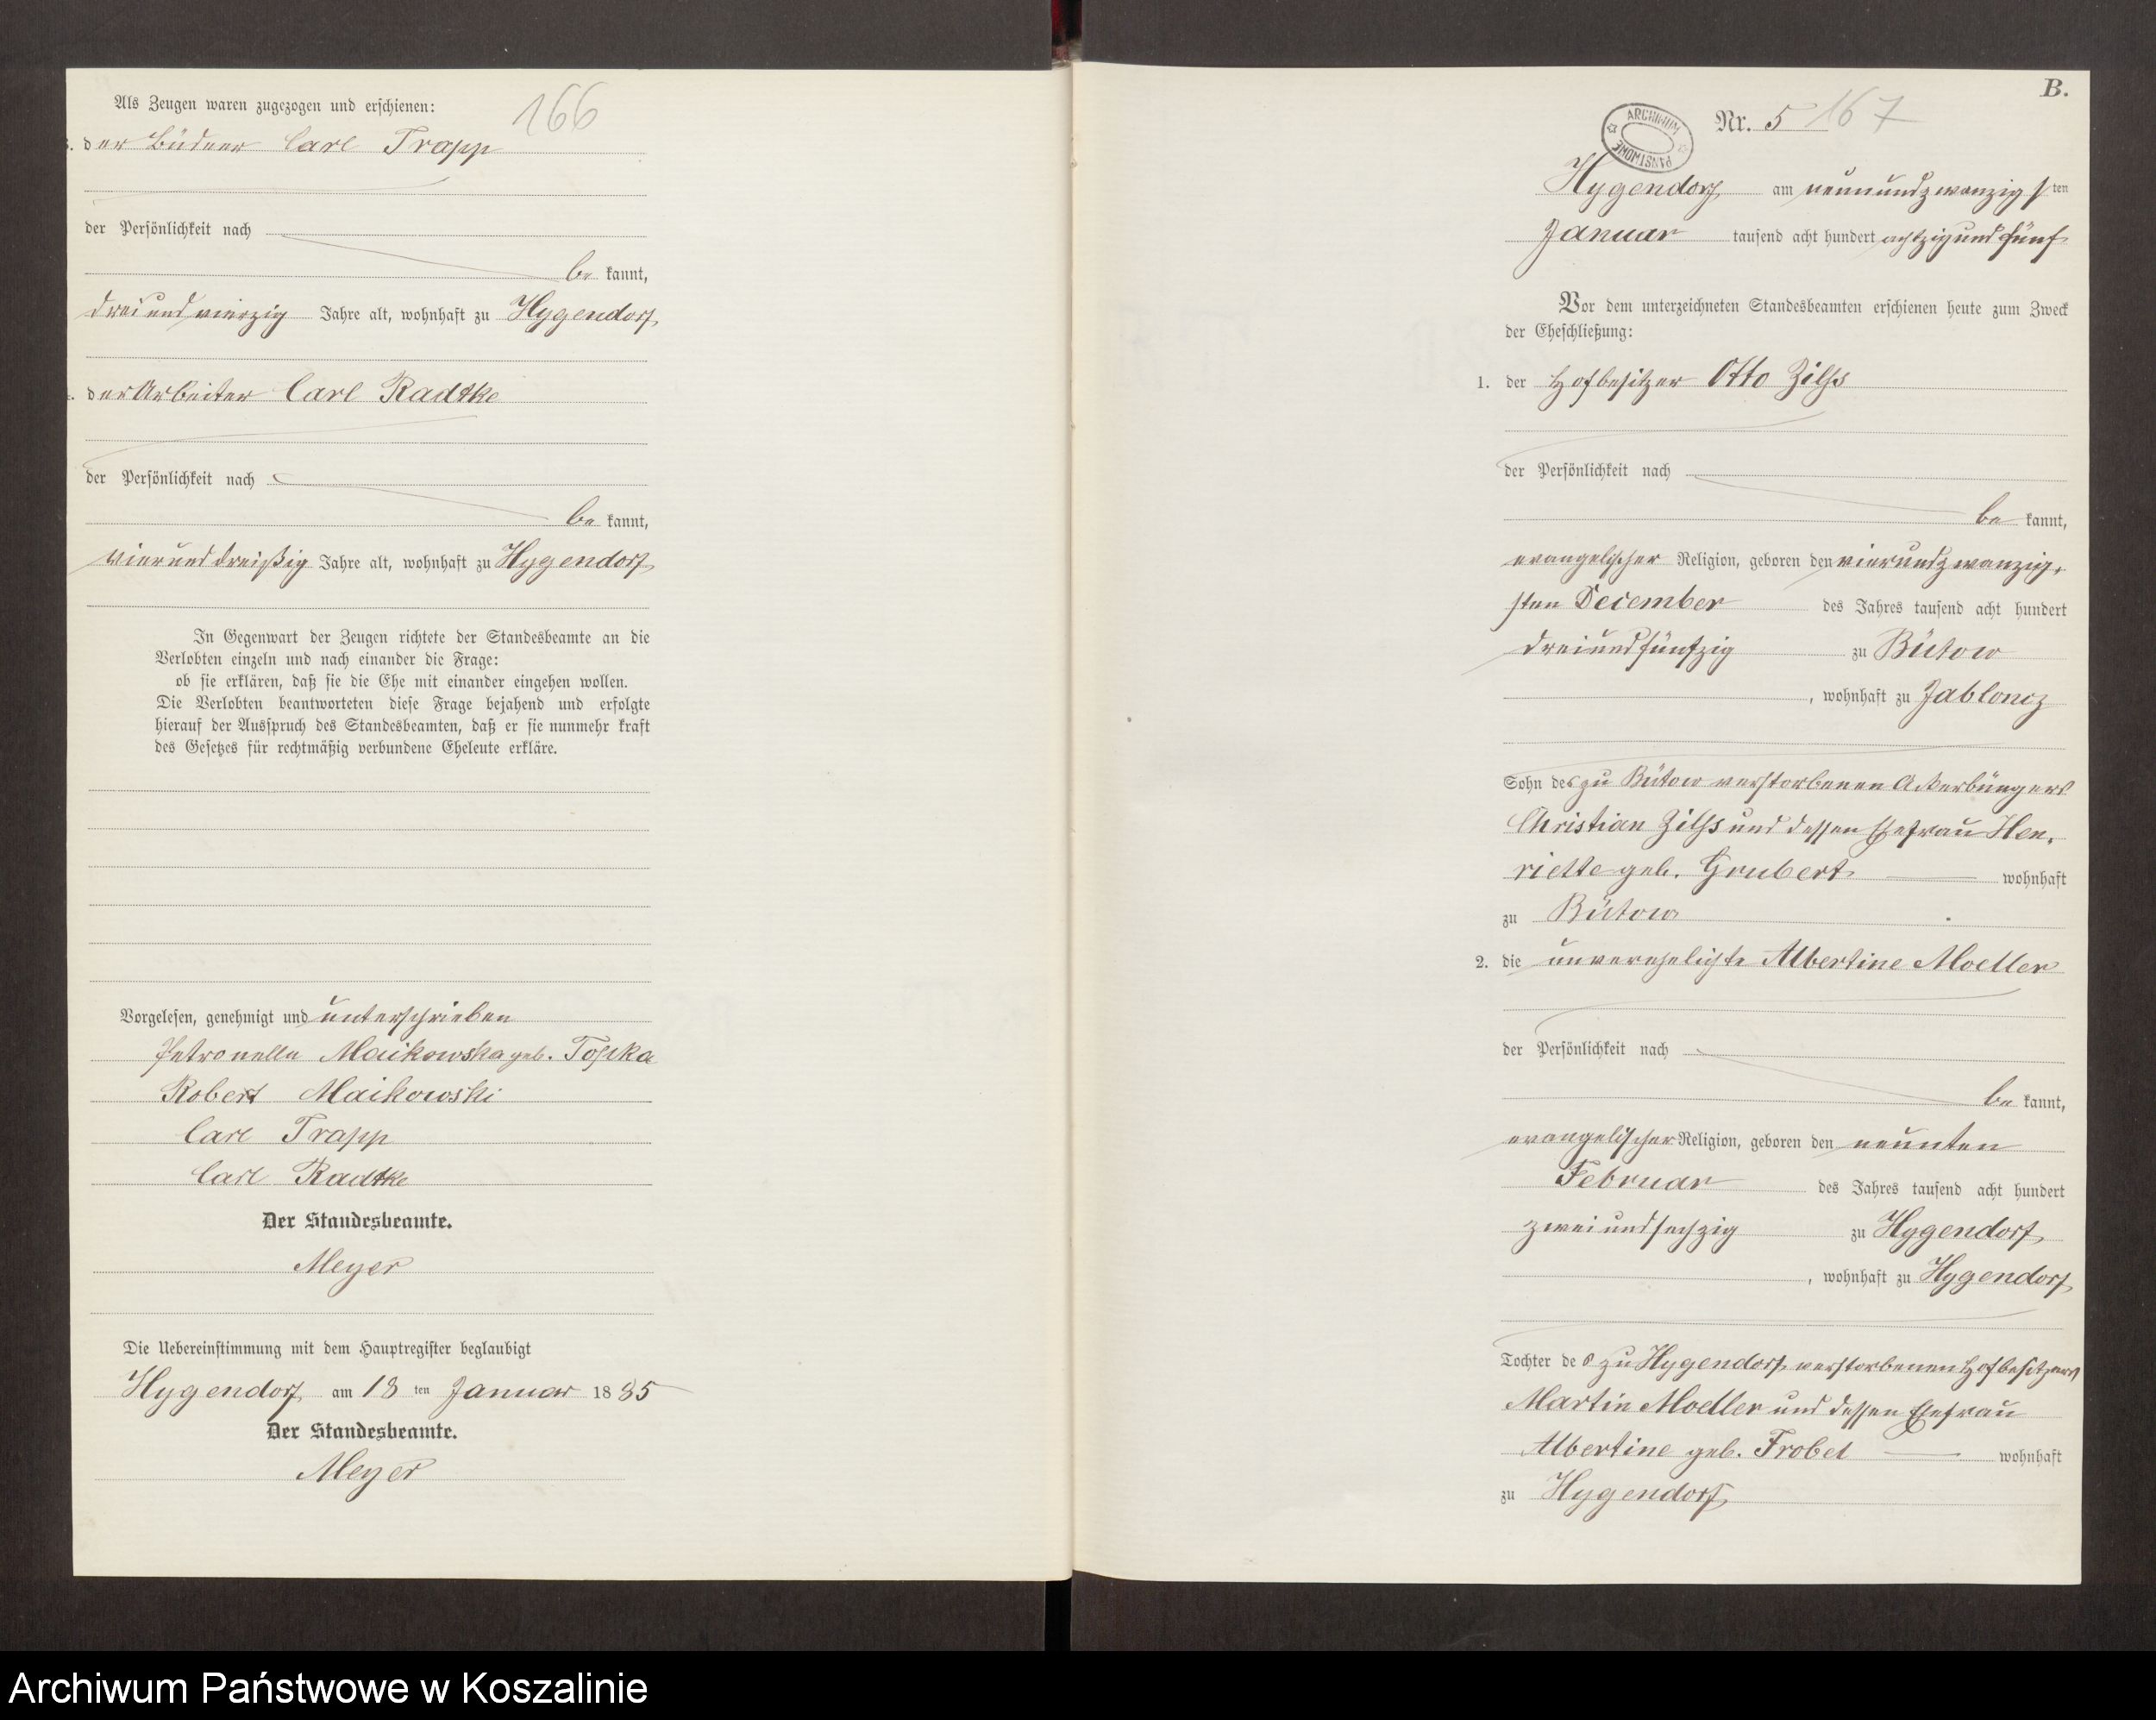 166
Als Zeugen waren zugezogen und erschienen:
der Büdner Carl Trapp
der Persönlichkeit nach
be kannt,
dreiundvierzig Jahre alt, wohnhaft zu Hygendorf,
der Arbeiter Carl Radtke
der Persönlichkeit nach
be kannt,
vierunddreißig Jahre alt, wohnhaft zu Hygendorf,
In Gegenwart der Zeugen richtete der Standesbeamte an die
Verlobten einzeln und nach einander die Frage:
ob sie erklären, daß sie die Ehe mit einander eingehen wollen.
Die Verlobten beantworteten diese Frage bejahend und erfolgte
hierauf der Ausspruch des Standesbeamten, daß er sie nunmehr kraft
des Gesetzes für rechtmäßig verbundene Eheleute erkläre.
Vorgelesen, genehmigt und unterschrieben
Petronella Maikowska geb.
Robert Maikowski
Carl Trapp
Carl Radtke
Der Standesbeamte.
Meyer
Die Uebereinstimmung mit dem Hauptregister beglaubigt
Hygendorf, am 18 ten Januar 1885
Der Standesbeamte.
Meyer
B.
ARCHIWUM PAŃSTWOWE
Nr. 5 167
Hygendorf, am neunundzwanzigsten
Januar tausend acht hundert achtzigundfünf
Vor dem unterzeichneten Standesbeamten erschienen heute zum Zweck
der Eheschließung:
1. der Hofbesitzer Otto Zilss
der Persönlichkeit nach
be kannt,
evangelischer Religion, geboren den vierundzwanzig-
sten December des Jahres tausend acht hundert
dreiundfünfzig zu Bütow
, wohnhaft zu Jabloncz
Sohn des zu Bütow verstorbenen Ackerbürgers
Christian Zilss und dessen Ehefrau Hen-
riette geb. Grubert wohnhaft
zu Bütow
2. die unverehelichte Albertine Moeller
der Persönlichkeit nach
be kannt,
evangelischer Religion, geboren den neunten
Februar des Jahres tausend acht hundert
zweiundsechzig zu Hygendorf,
, wohnhaft zu Hygendorf,
Tochter des zu Hygendorf, verstorbenen Hofbesitzers
Martin Moeller und dessen Ehefrau
Albertine geb. Frobel wohnhaft
zu Hygendorf,
Archiwum Państwowe w Koszalinie